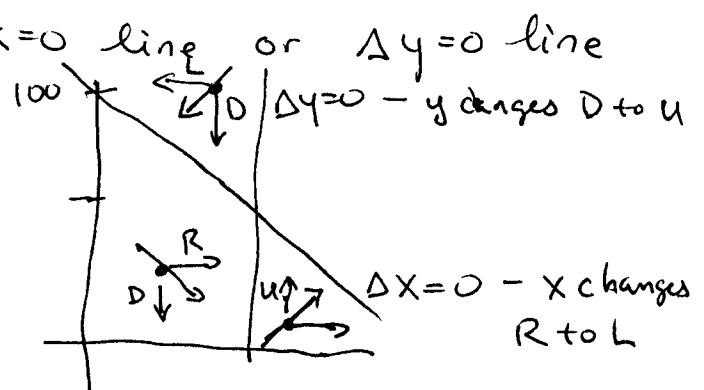 x=0 line or Δy=0 line
100 L D Δy=0 - y changes D to U
R
D U ΔX=0 - X changes
R to L